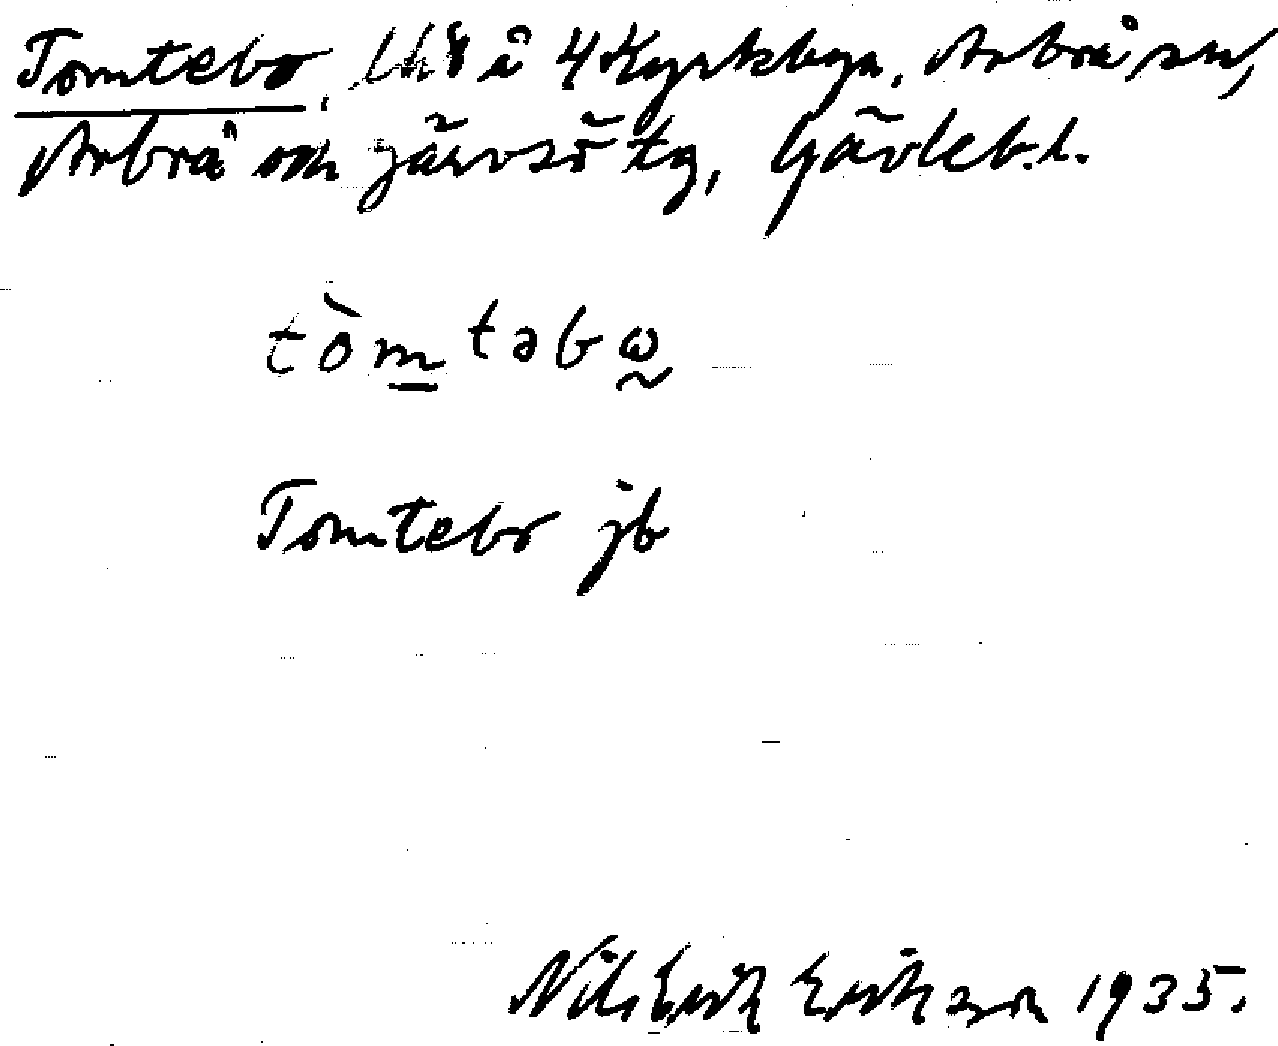 Tomtebo, lht i 4 Kyrkbyn, Arbrå sn,
Arbrå och Järvsö tg, Gävleb. l.
tòm̲təbω̰
Tomtebo jb
Nils Erik Erikson 1935.